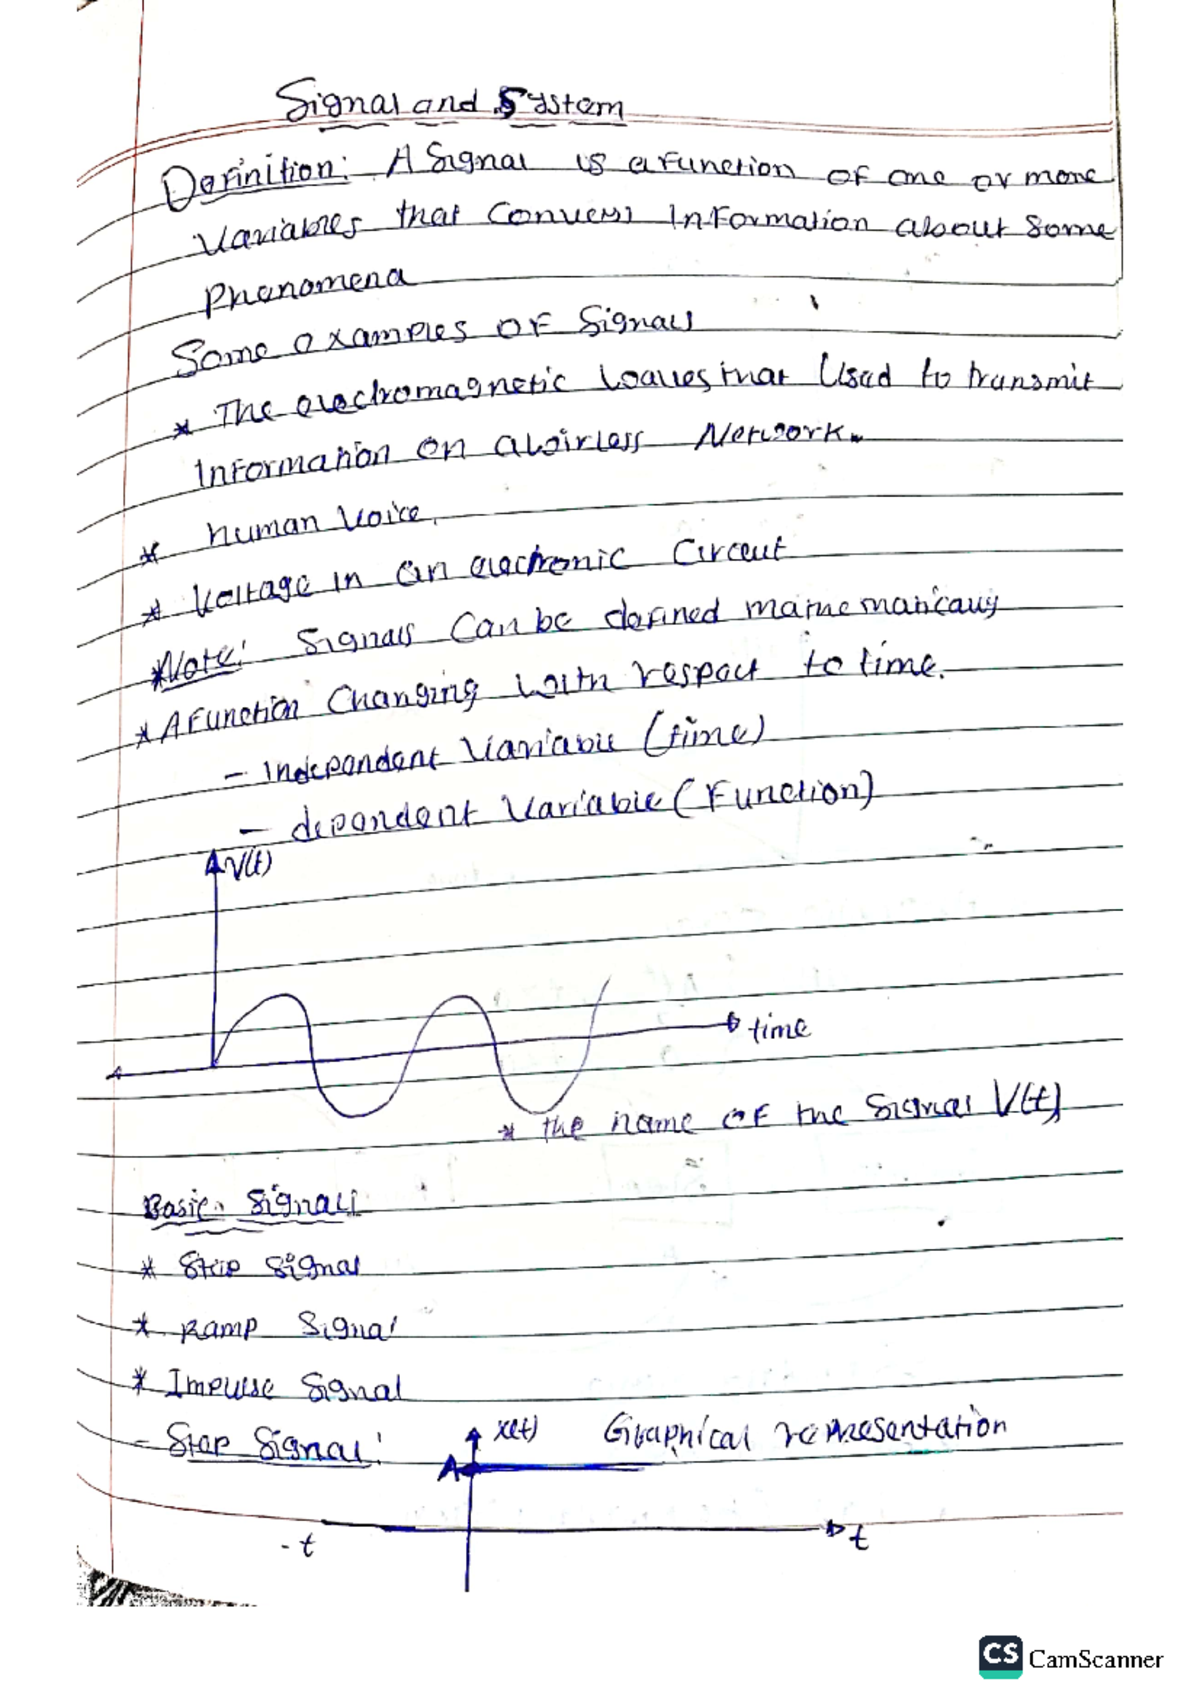 Signal and System
Definition: A Signal is a function of one or more
Variables that Conveys Information about Some
Phenomena
Some examples of Signals
* The electromagnetic waves that Used to transmit
Information on a wireless Network.
* human Voice.
* Voltage in an electronic Circuit
*Note: Signals Can be defined mathematically
* A Function Changing with respect to time.
- Independent Variable (time)
- dependent Variable (Function)
V(t)
time
* the name of the Signal V(t)
Basic Signals
* Step Signal
* Ramp Signal
* Impulse Signal
- Step Signal: x(t) Graphical representation
A
-t t
CS CamScanner